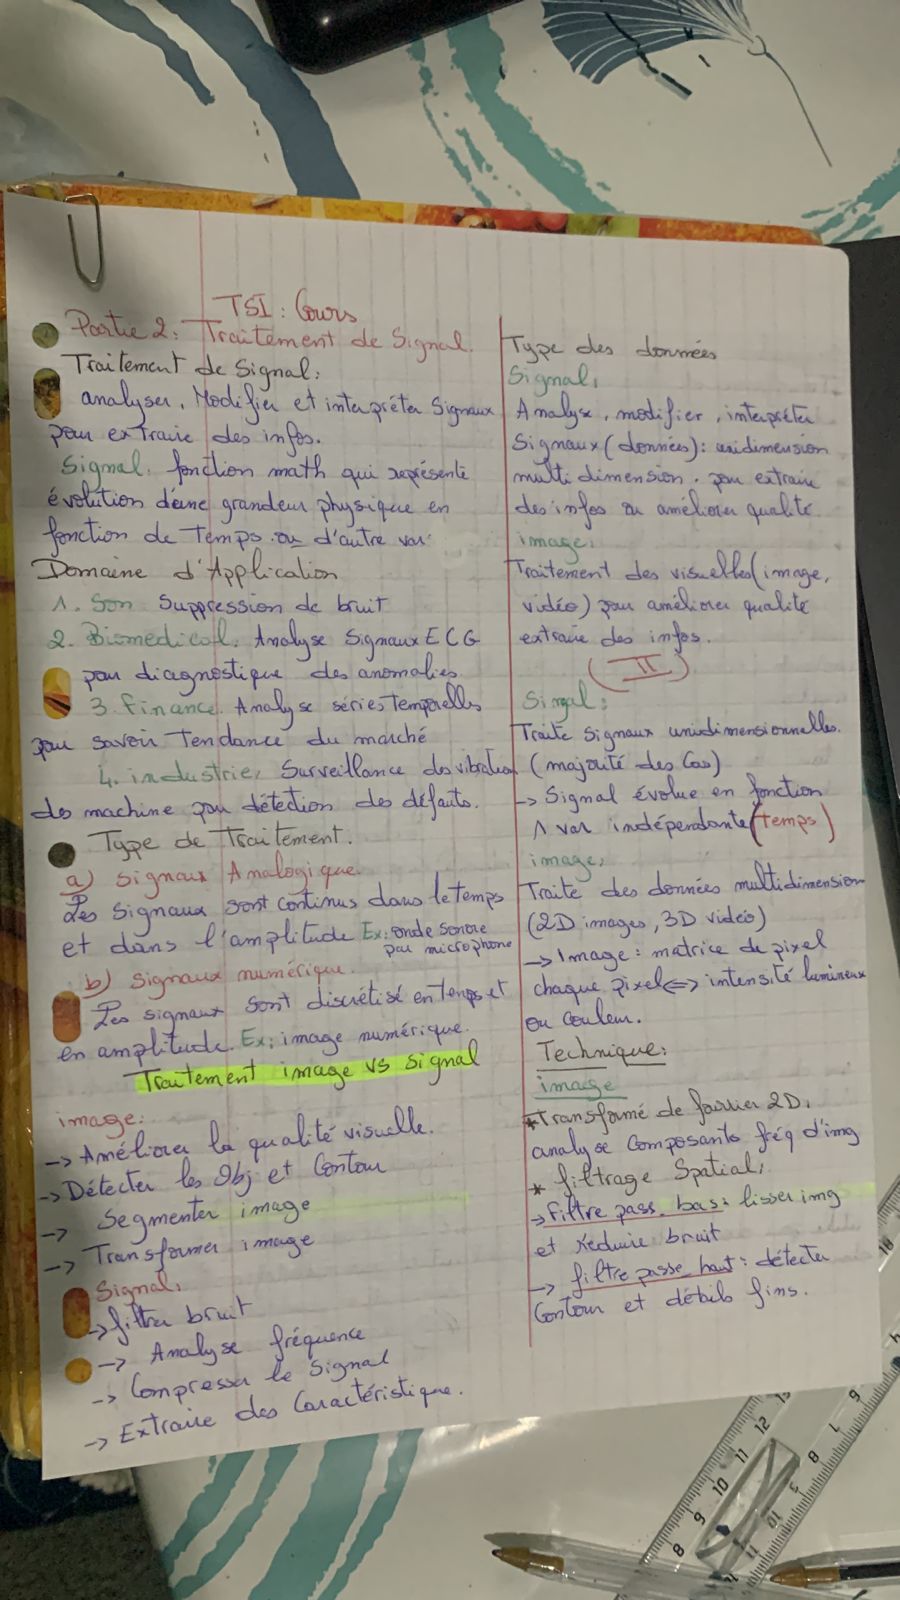 TSI : Cours
Partie 2: Traitement de Signal.
Traitement de Signal:
analyser, Modifier et interpréter Signaux
pour extraire des infos.
Signal. fonction math qui représente
évolution d'une grandeur physique en
fonction de Temps ou d'autre var.
Domaine d'Application
1. Son Suppression de bruit
2. Biomedical. Analyse Signaux ECG
pour diagnostique des anomalies.
3. finance. Analyse séries temporelles
pour savoir Tendance du marché
4. industrie, Surveillance des vibrations
des machine pour détection des défauts.
Type de Traitement.
a) Signaux Analogique.
Les Signaux sont continus dans le temps
et dans l'amplitude Ex: onde sonore
par microphone
b) Signaux numérique.
Les signaux sont discrétisé en temps et
en amplitude. Ex: image numérique.
Traitement image vs Signal
image:
-> Améliorer la qualité visuelle.
-> Détecter les Obj et Contour
-> Segmenter image
-> Transformer image
Signal:
-> filtrer bruit
-> Analyse fréquence
-> Compresser le Signal
-> Extraire des Caractéristique.
Type des données
Signal,
Analyse, modifier, interpréter
Signaux (données): unidimension
multi dimension. pour extraire
des infos ou améliorer qualité.
image:
Traitement des visuelles (image,
vidéo) pour améliorer qualité
extraire des infos.
(II)
Singal:
Traite Signaux unidimensionnelles.
(majorité des Cas)
-> Signal évolue en fonction
1 var indépendante (temps)
image,
Traite des données multidimension
(2D images, 3D vidéo)
-> Image: matrice de pixel
chaque pixel <=> intensité lumineux
ou couleur.
Technique:
image
* Transformé de fourier 2D,
analyse Composants fréq d'img
* filtrage Spatial,
-> Filtre pass-bas: lisser img
et réduire bruit
-> filtre passe-haut: détecter
Contour et détails fins.